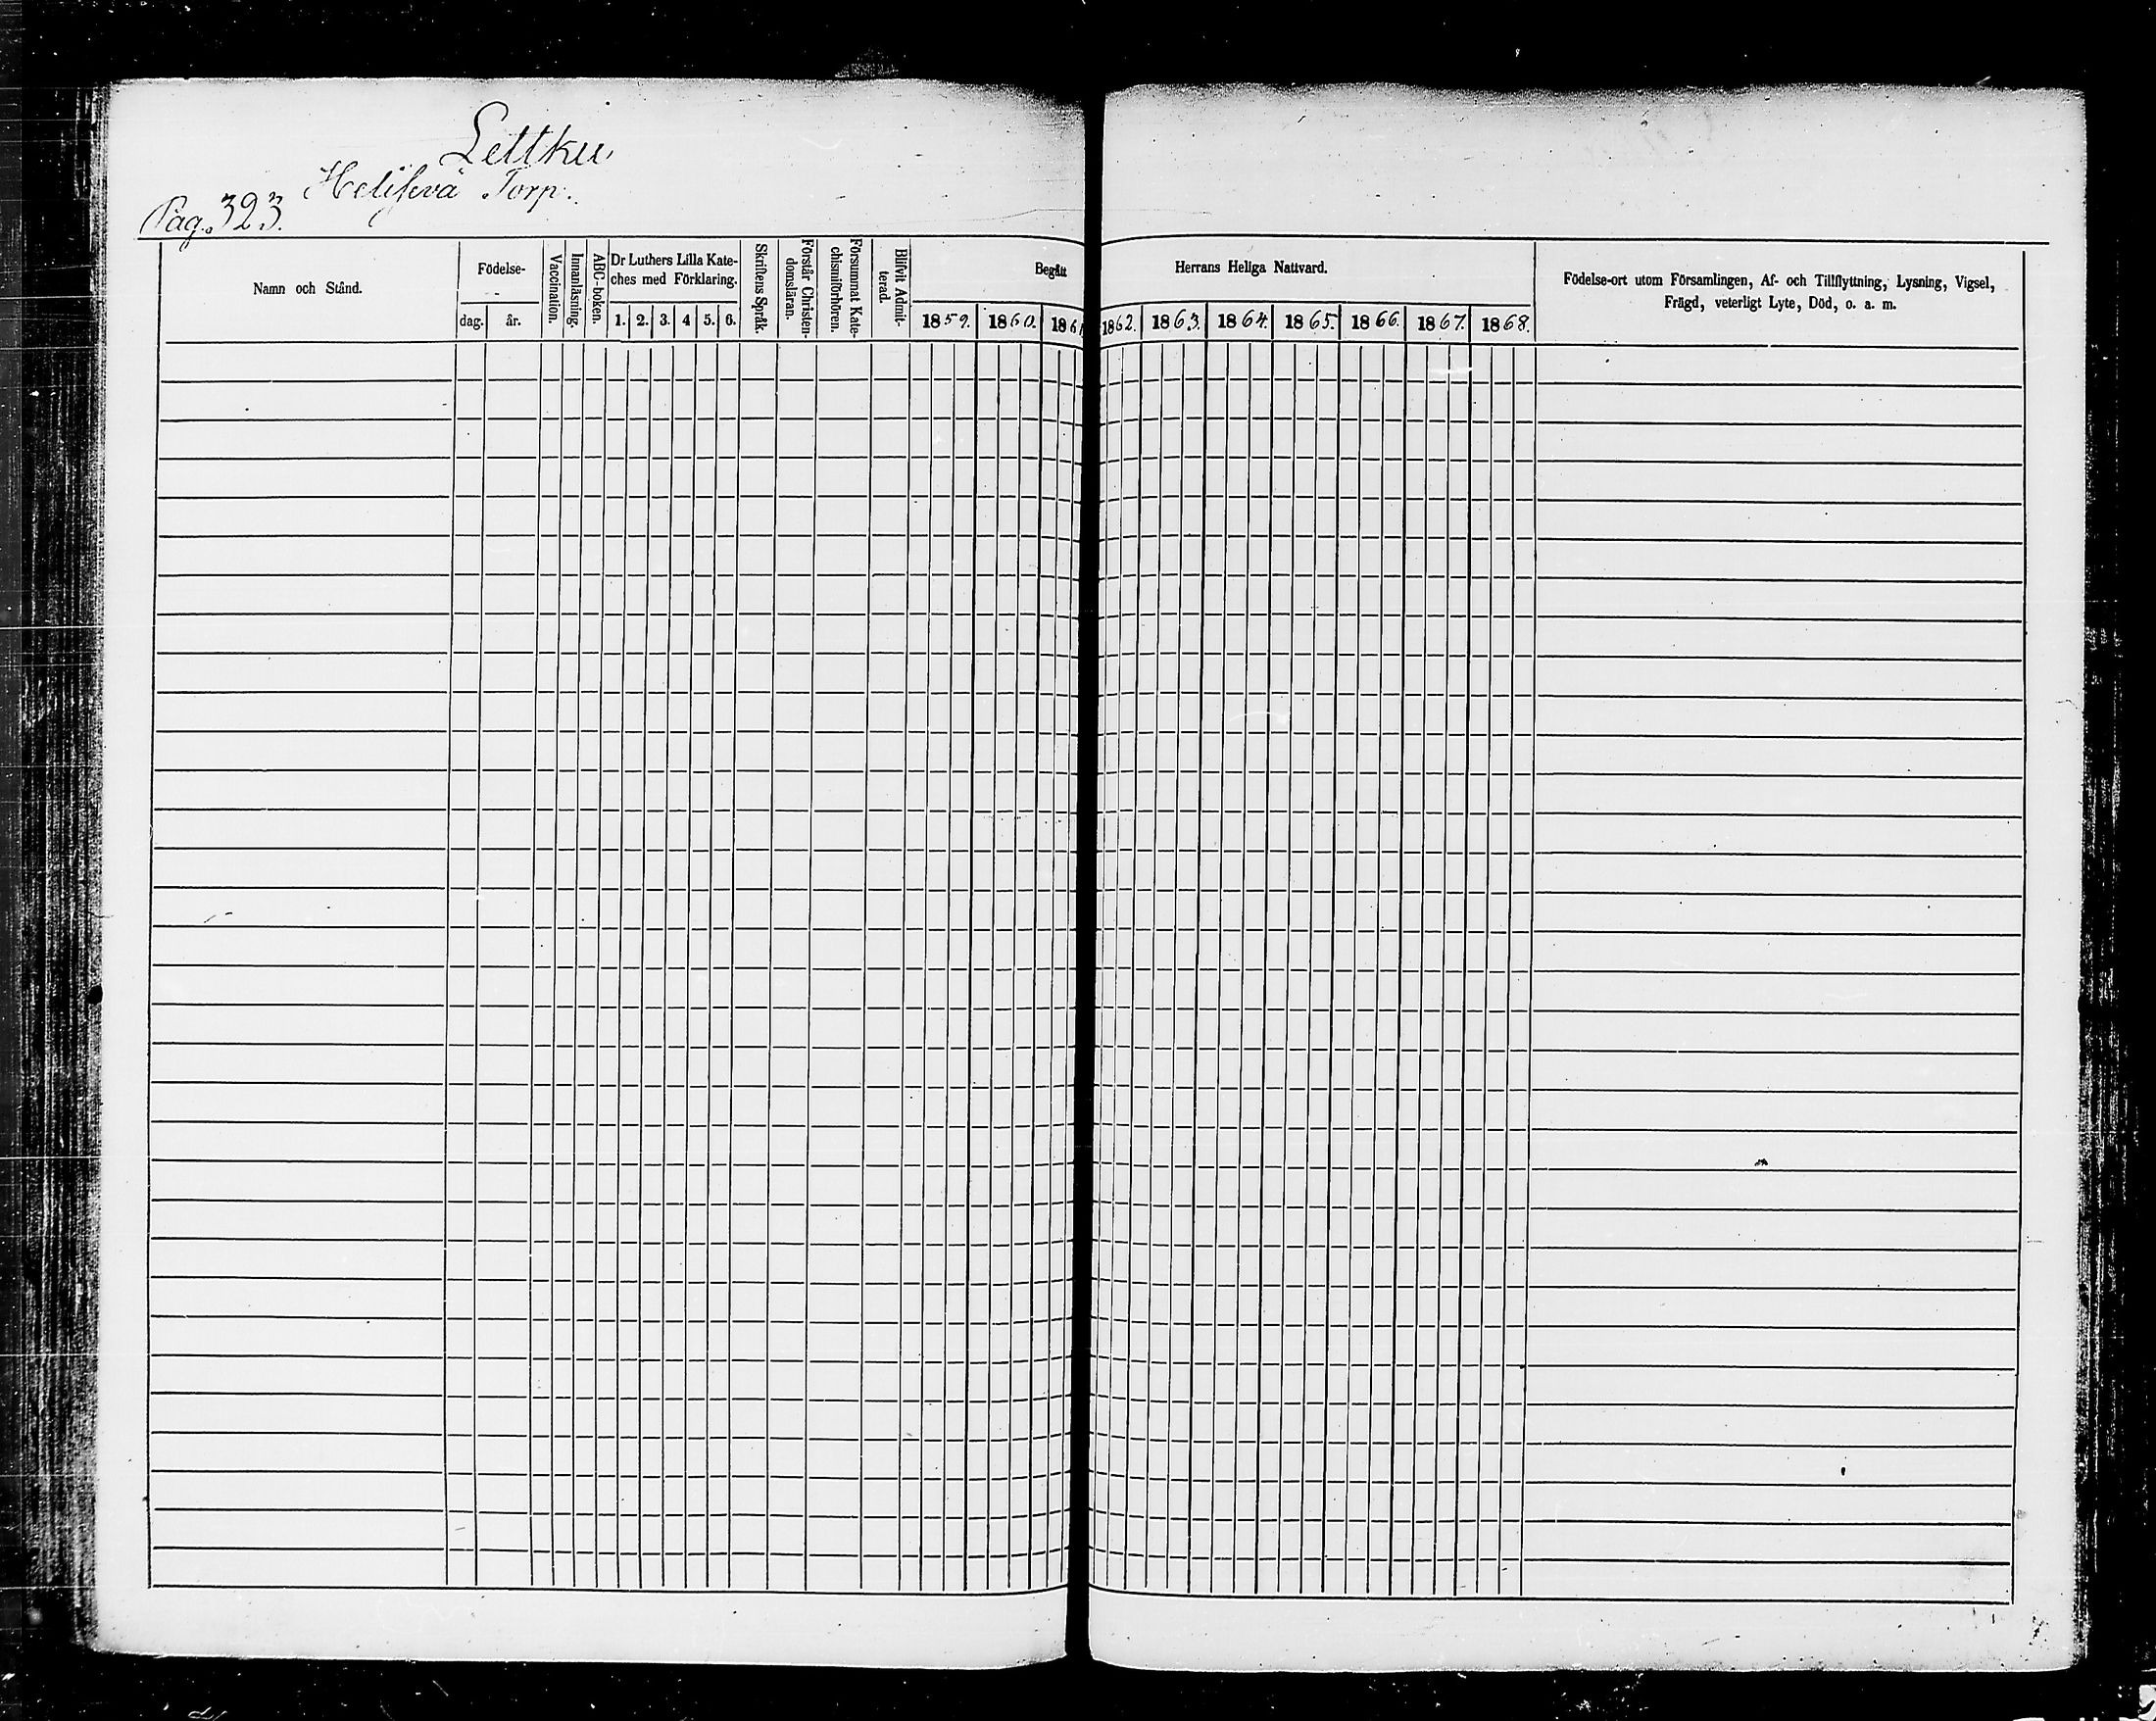 Lettku
Helisevä Torp.
Pag. 323.
Namn och Stånd.
Födelse-
dag.
år.
Vaccination.
Innanläsning.
ABC-boken.
Dr Luthers Lilla Kate-
ches med Förklaring.
1. 2. 3. 4 5. 6.
Skriftens Språk.
Förstår Christen-
domsläran.
Försummat Kate-
chismiförhören.
Blifvit Admit-
terad.
Begått
Herrans Heliga Nattvard.
1859. 1860. 1861 1862. 1863. 1864. 1865. 1866. 1867. 1868.
Födelse-ort utom Församlingen, Af- och Tillflyttning, Lysning, Vigsel,
Frägd, veterligt Lyte, Död, o. a. m.